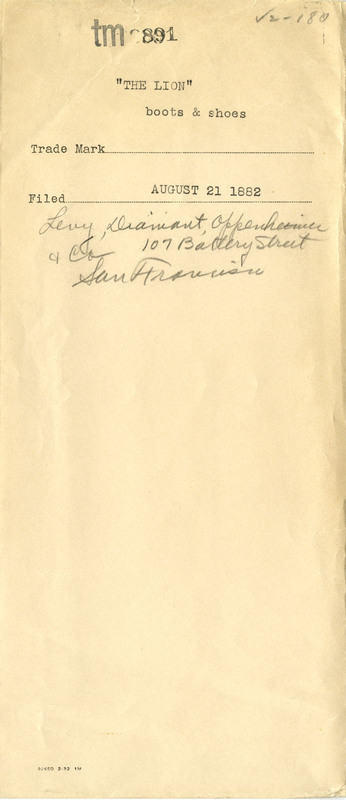 √2-180
tm 891
"THE LION"
boots & shoes
Trade Mark
Filed AUGUST 21 1882
Levy, Diamant, Oppenheimer
& Co 107 Battery Street
San Francisco